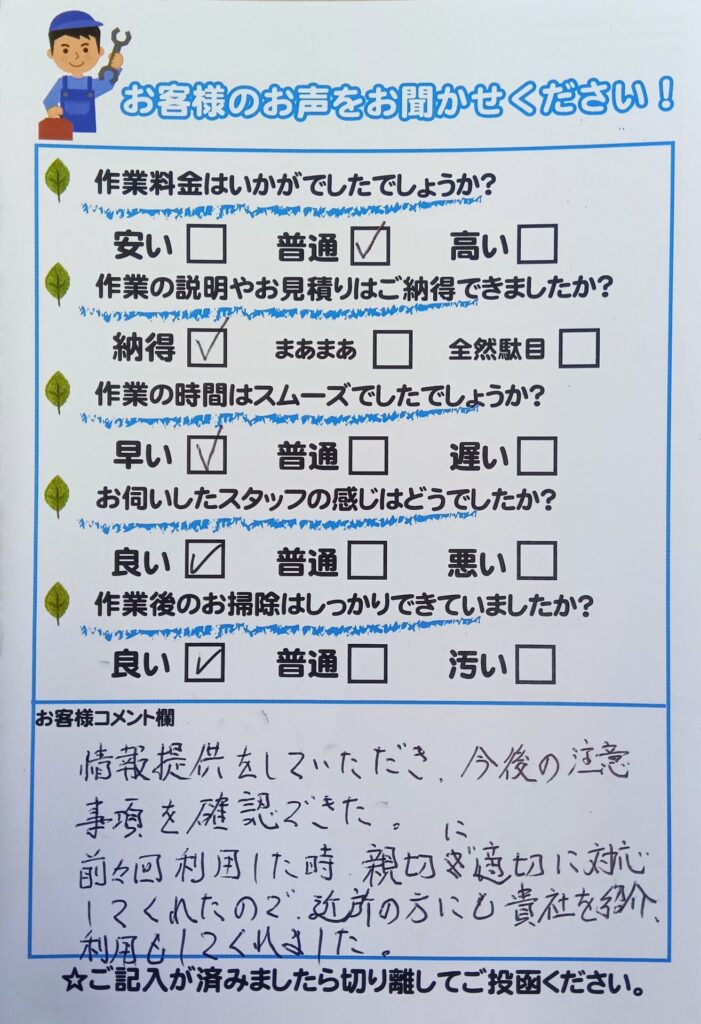 お客様のお声をお聞かせください！
作業料金はいかがでしたでしょうか？
安い □ 普通 ☑ 高い □
作業の説明やお見積りはご納得できましたか？
納得 ☑ まあまあ □ 全然駄目 □
作業の時間はスムーズでしたでしょうか？
早い ☑ 普通 □ 遅い □
お伺いしたスタッフの感じはどうでしたか？
良い ☑ 普通 □ 悪い □
作業後のお掃除はしっかりできていましたか？
良い ☑ 普通 □ 汚い □
お客様コメント欄
情報提供をしていただき、今後の注意
事項を確認できた。
前々回利用した時 親切に適切に対応
してくれたので、近所の方にも貴社を紹介、
利用もしてくれました。
☆ご記入が済みましたら切り離してご投函ください。